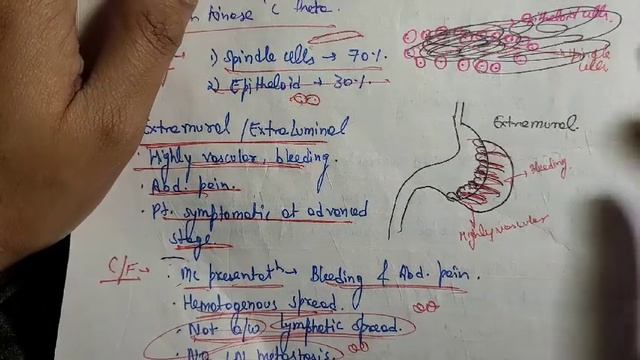 Kinase 'C theta.
Epitheloid cells.
1) Spindle cells → 70%.
Spindle
cells
2) Epitheloid → 30%.
Extramural / Extraluminal
Extramural.
· Highly vascular, bleeding.
Bleeding.
· Abd. pain.
· Pt. symptomatic at advanced
stage
Highly vascular
C/F → · Mc presentatⁿ → Bleeding & Abd. pain.
· Hematogenous spread.
· Not a/w lymphatic spread.
· No LN metastasis.